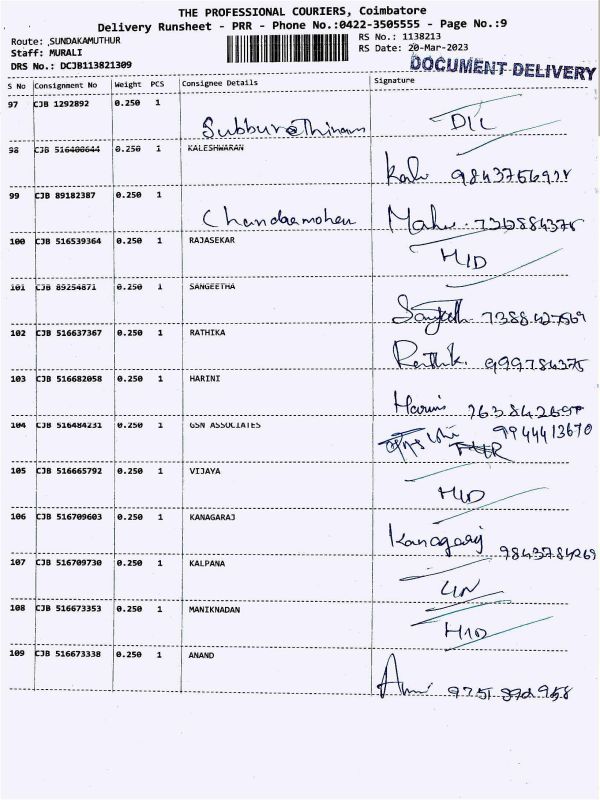 THE PROFESSIONAL COURIERS, Coimbatore
Delivery Runsheet - PRR - Phone No.:0422-3505555 - Page No.:9
Route: SUNDAKAMUTHUR
RS No.: 1138213
Staff: MURALI
RS Date: 20-Mar-2023
DRS No.: DCJB113821309
DOCUMENT DELIVERY
S No Consignment No Weight PCS Consignee Details Signature
97 CJB 1292892 0.250 1
Subburathinam D/L
98 CJB 516400644 0.250 1 KALESHWARAN
99 CJB 89182387 0.250 1
Chandramohan
100 CJB 516539364 0.250 1 RAJASEKAR
101 CJB 89254871 0.250 1 SANGEETHA
102 CJB 516637367 0.250 1 RATHIKA
Rathik. 999784375
103 CJB 516682058 0.250 1 HARINI
Harini
104 CJB 516484231 0.250 1 GSN ASSOCIATES
9944413670
105 CJB 516665792 0.250 1 VIJAYA
106 CJB 516709603 0.250 1 KANAGARAJ
Kanagaraj 9843784269
107 CJB 516709730 0.250 1 KALPANA
108 CJB 516673353 0.250 1 MANIKNADAN
109 CJB 516673338 0.250 1 ANAND